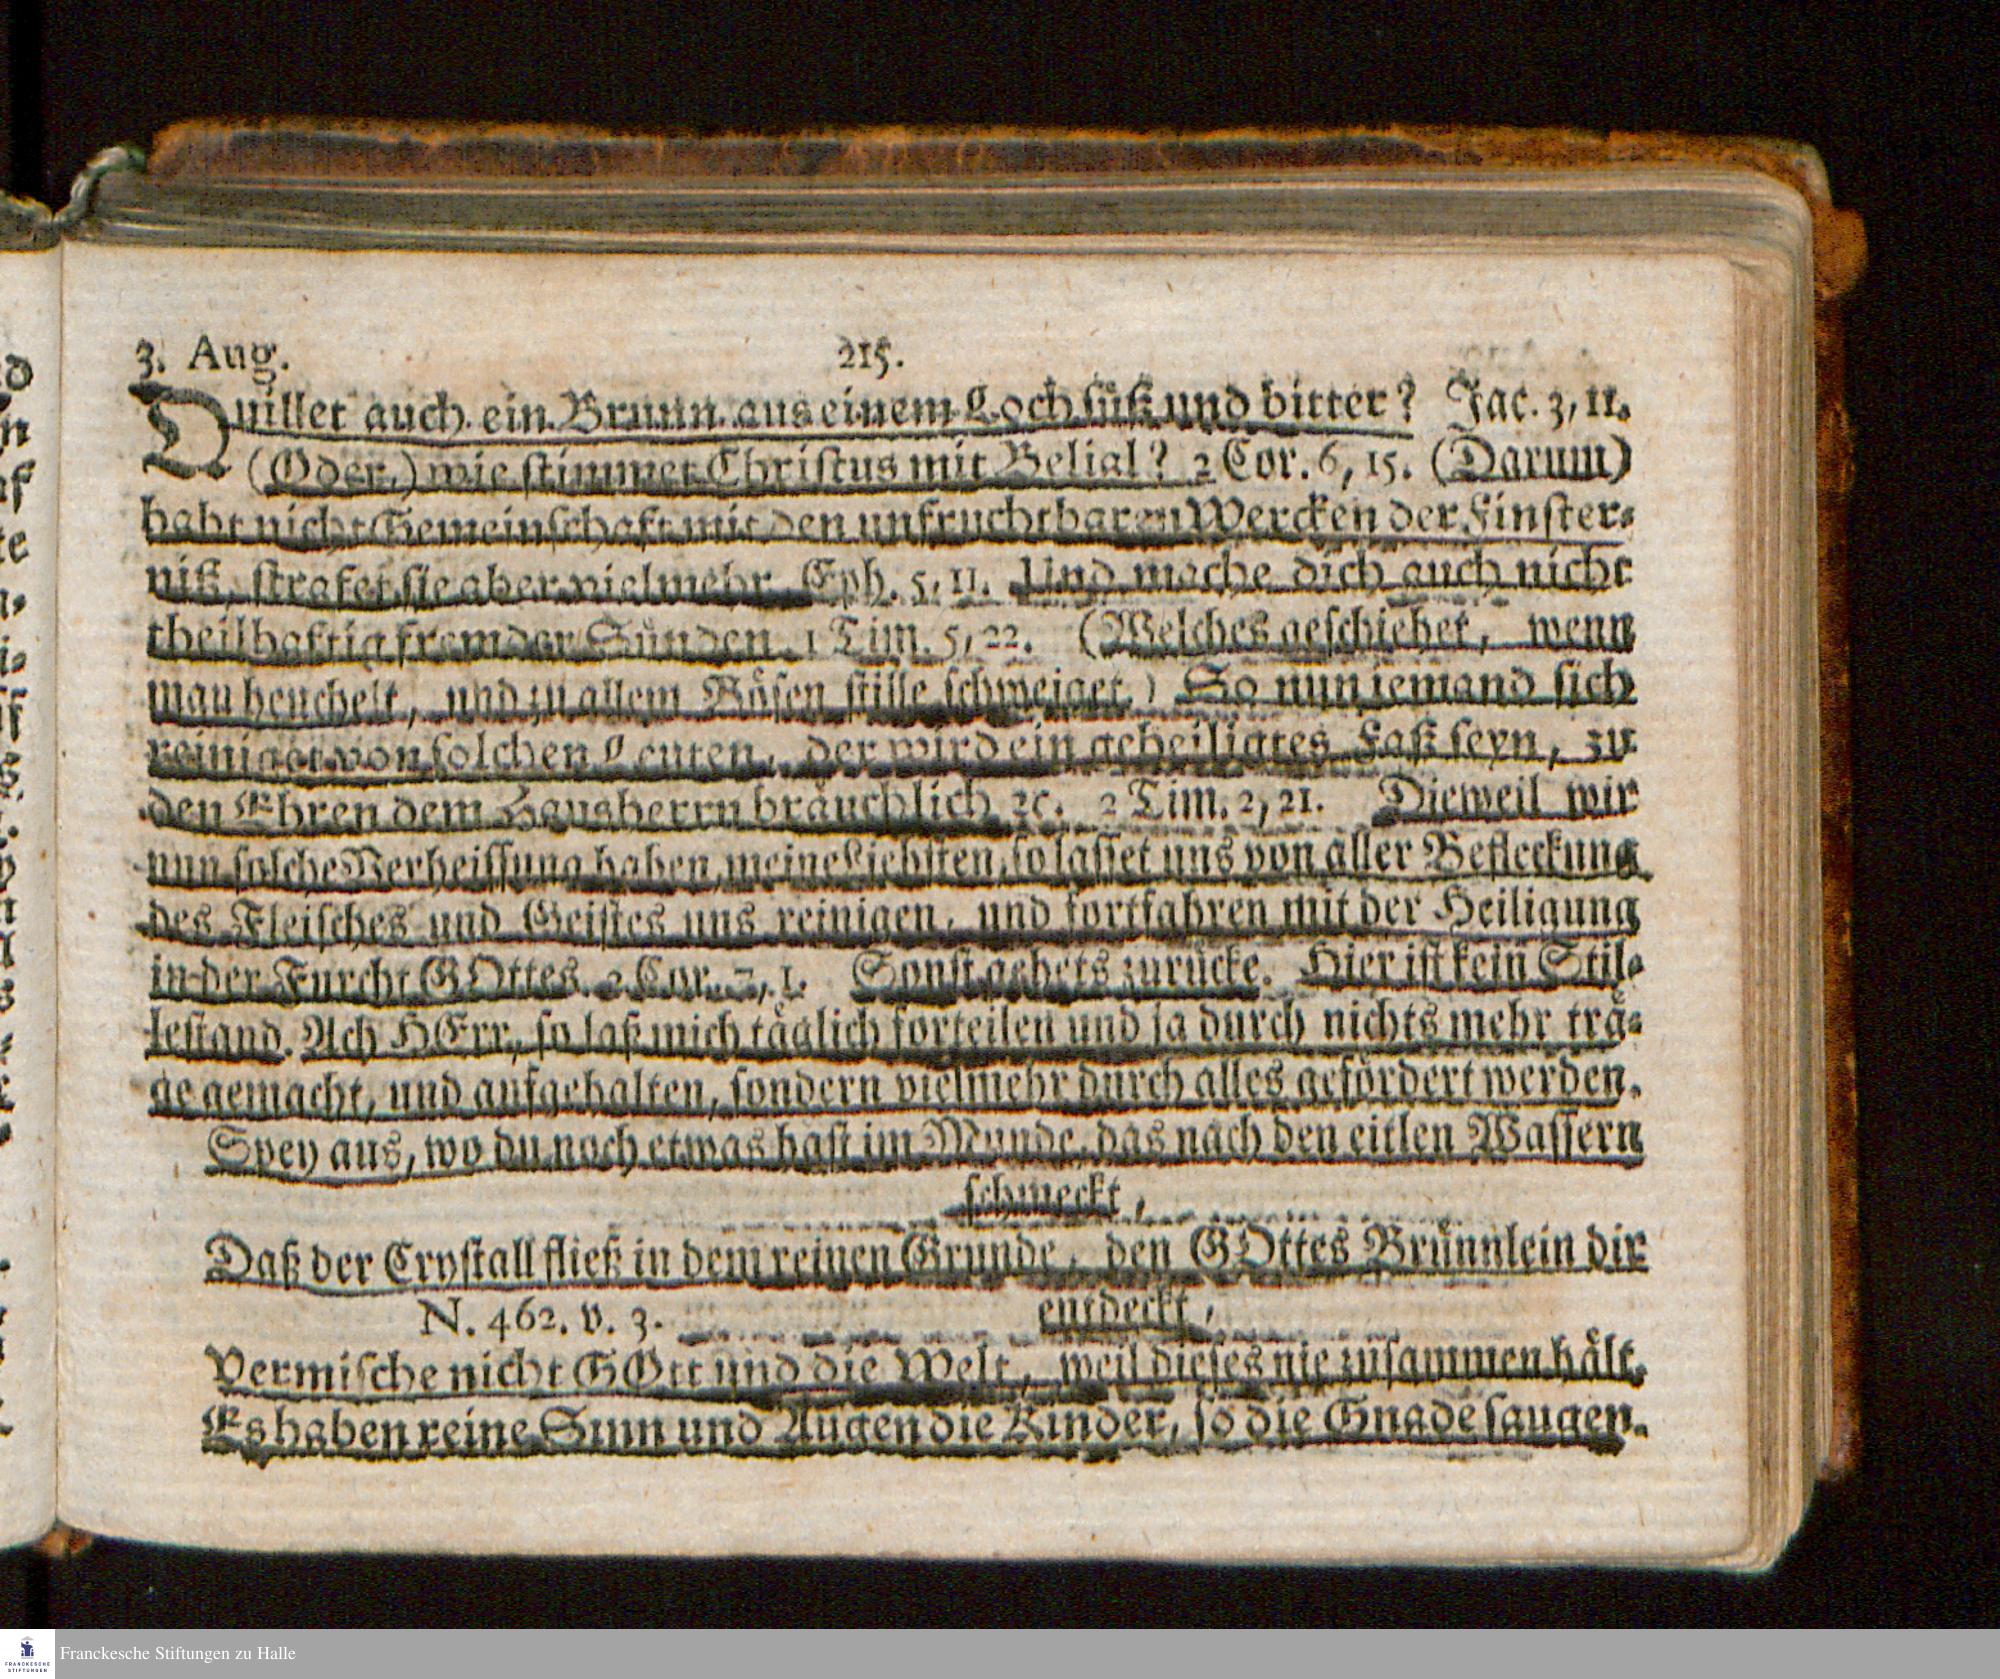 3. Aug. 215.
Quillet auch ein Brunn aus einem Loch süß und bitter? Jac. 3, 11.
(Oder,) wie stimmet Christus mit Belial? 2 Cor. 6, 15. (Darum)
habt nicht Gemeinschaft mit den unfruchtbaren Wercken der Finster-
niß, strafet sie aber vielmehr. Eph. 5, 11. Und mache dich auch nicht
theilhaftig fremder Sünden. 1 Tim. 5, 22. (Welches geschiehet, wenn
man heuchelt, und zu allem Bösen stille schweiget.) So nun iemand sich
reiniget von solchen Leuten, der wird ein geheiligtes Faß seyn, zu
den Ehren dem Hausherrn bräuchlich ꝛc. 2 Tim. 2, 21. Dieweil wir
nun solche Verheissung haben, meine Liebsten, so lasset uns von aller Befleckung
des Fleisches und Geistes uns reinigen, und fortfahren mit der Heiligung
in der Furcht GOttes. 2 Cor. 7, 1. Sonst gehets zurücke. Hier ist kein Stil-
lestand. Ach HErr, so laß mich täglich forteilen und ja durch nichts mehr trä-
ge gemacht, und aufgehalten, sondern vielmehr durch alles gefördert werden.
Spey aus, wo du noch etwas hast im Munde, das nach den eitlen Wassern
schmeckt,
Daß der Crystall fließ in dem reinen Grunde, den GOttes Brünnlein dir
N. 462. v. 3. entdeckt,
Vermische nicht GOtt und die Welt, weil dieses nie zusammen hält.
Es haben reine Sinn und Augen die Kinder, so die Gnade saugen.
Franckesche Stiftungen zu Halle
FRANCKESCHE
STIFTUNGEN